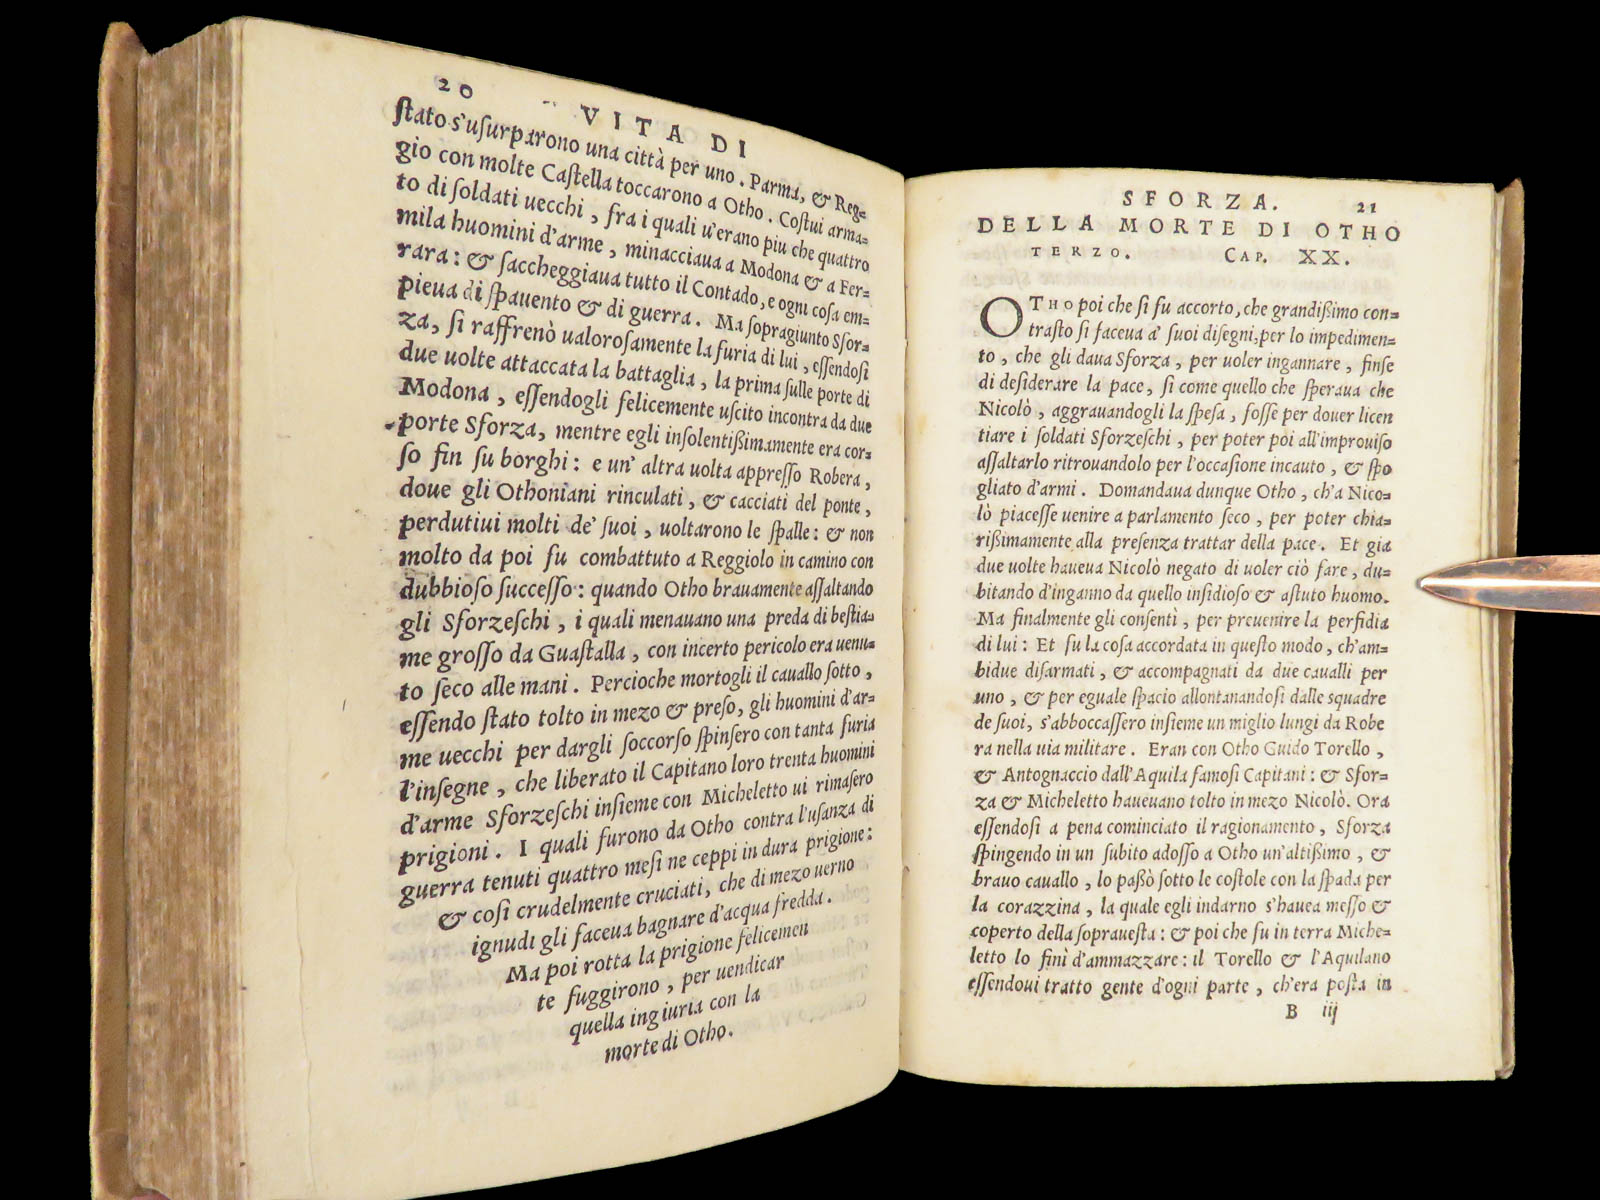 20 VITA DI
ſtato s'uſurparono una città per uno. Parma, & Reg=
gio con molte Caſtella toccarono a Otho. Coſtui arma=
to di ſoldati uecchi, fra i quali u'erano piu che quattro
mila huomini d'arme, minacciaua a Modona & a Fer=
rara: & ſaccheggiaua tutto il Contado, e ogni coſa em=
pieua di ſpauento & di guerra. Ma ſopragiunto Sfor=
za, ſi raffrenò ualoroſamente la furia di lui, eſſendoſi
due uolte attaccata la battaglia, la prima ſulle porte di
Modona, eſſendogli felicemente uſcito incontra da due
porte Sforza, mentre egli inſolentißimamente era cor=
ſo fin ſu borghi: e un' altra uolta appreſſo Robera,
doue gli Othoniani rinculati, & cacciati del ponte,
perdutiui molti de' ſuoi, uoltarono le ſpalle: & non
molto da poi fu combattuto a Reggiolo in camino con
dubbioſo ſucceſſo: quando Otho brauamente aſſaltando
gli Sforzeſchi, i quali menauano una preda di beſtia=
me groſſo da Guaſtalla, con incerto pericolo era uenu=
to ſeco alle mani. Percioche mortogli il cauallo ſotto,
eſſendo ſtato tolto in mezo & preſo, gli huomini d'ar=
me uecchi per dargli ſoccorſo ſpinſero con tanta furia
l'inſegne, che liberato il Capitano loro trenta huomini
d'arme Sforzeſchi inſieme con Micheletto ui rimaſero
prigioni. I quali furono da Otho contra l'uſanza di
guerra tenuti quattro meſi ne ceppi in dura prigione:
& coſi crudelmente cruciati, che di mezo uerno
ignudi gli faceua bagnare d'acqua fredda.
Ma poi rotta la prigione felicemen
te fuggirono, per uendicar
quella ingiuria con la
morte di Otho.
SFORZA. 21
DELLA MORTE DI OTHO
TERZO. CAP. XX.
OTHO poi che ſi fu accorto, che grandißimo con=
traſto ſi faceua a' ſuoi diſegni, per lo impedimen=
to, che gli daua Sforza, per uoler ingannare, finſe
di deſiderare la pace, ſi come quello che ſperaua che
Nicolò, aggrauandogli la ſpeſa, foſſe per douer licen
tiare i ſoldati Sforzeſchi, per poter poi all'improuiſo
aſſaltarlo ritrouandolo per l'occaſione incauto, & ſpo
gliato d'armi. Domandaua dunque Otho, ch'a Nico=
lò piaceſſe uenire a parlamento ſeco, per poter chia=
rißimamente alla preſenza trattar della pace. Et gia
due uolte haueua Nicolò negato di uoler ciò fare, du=
bitando d'inganno da quello inſidioſo & aſtuto huomo.
Ma finalmente gli conſentì, per preuenire la perfidia
di lui: Et fu la coſa accordata in queſto modo, ch'am=
bidue diſarmati, & accompagnati da due caualli per
uno, & per eguale ſpacio allontanandoſi dalle squadre
de ſuoi, s'abboccaſſero inſieme un miglio lungi da Robe
ra nella uia militare. Eran con Otho Guido Torello,
& Antognaccio dall'Aquila famoſi Capitani: & Sfor=
za & Micheletto haueuano tolto in mezo Nicolò. Ora
eſſendoſi a pena cominciato il ragionamento, Sforza
ſpingendo in un ſubito adoſſo a Otho un'altißimo, &
brauo cauallo, lo paßò ſotto le coſtole con la ſpada per
la corazzina, la quale egli indarno s'hauea meſſo &
coperto della ſoprauesta: & poi che fu in terra Miche=
letto lo finì d'ammazzare: il Torello & l'Aquilano
eſſendoui tratto gente d'ogni parte, ch'era poſta in
B iij